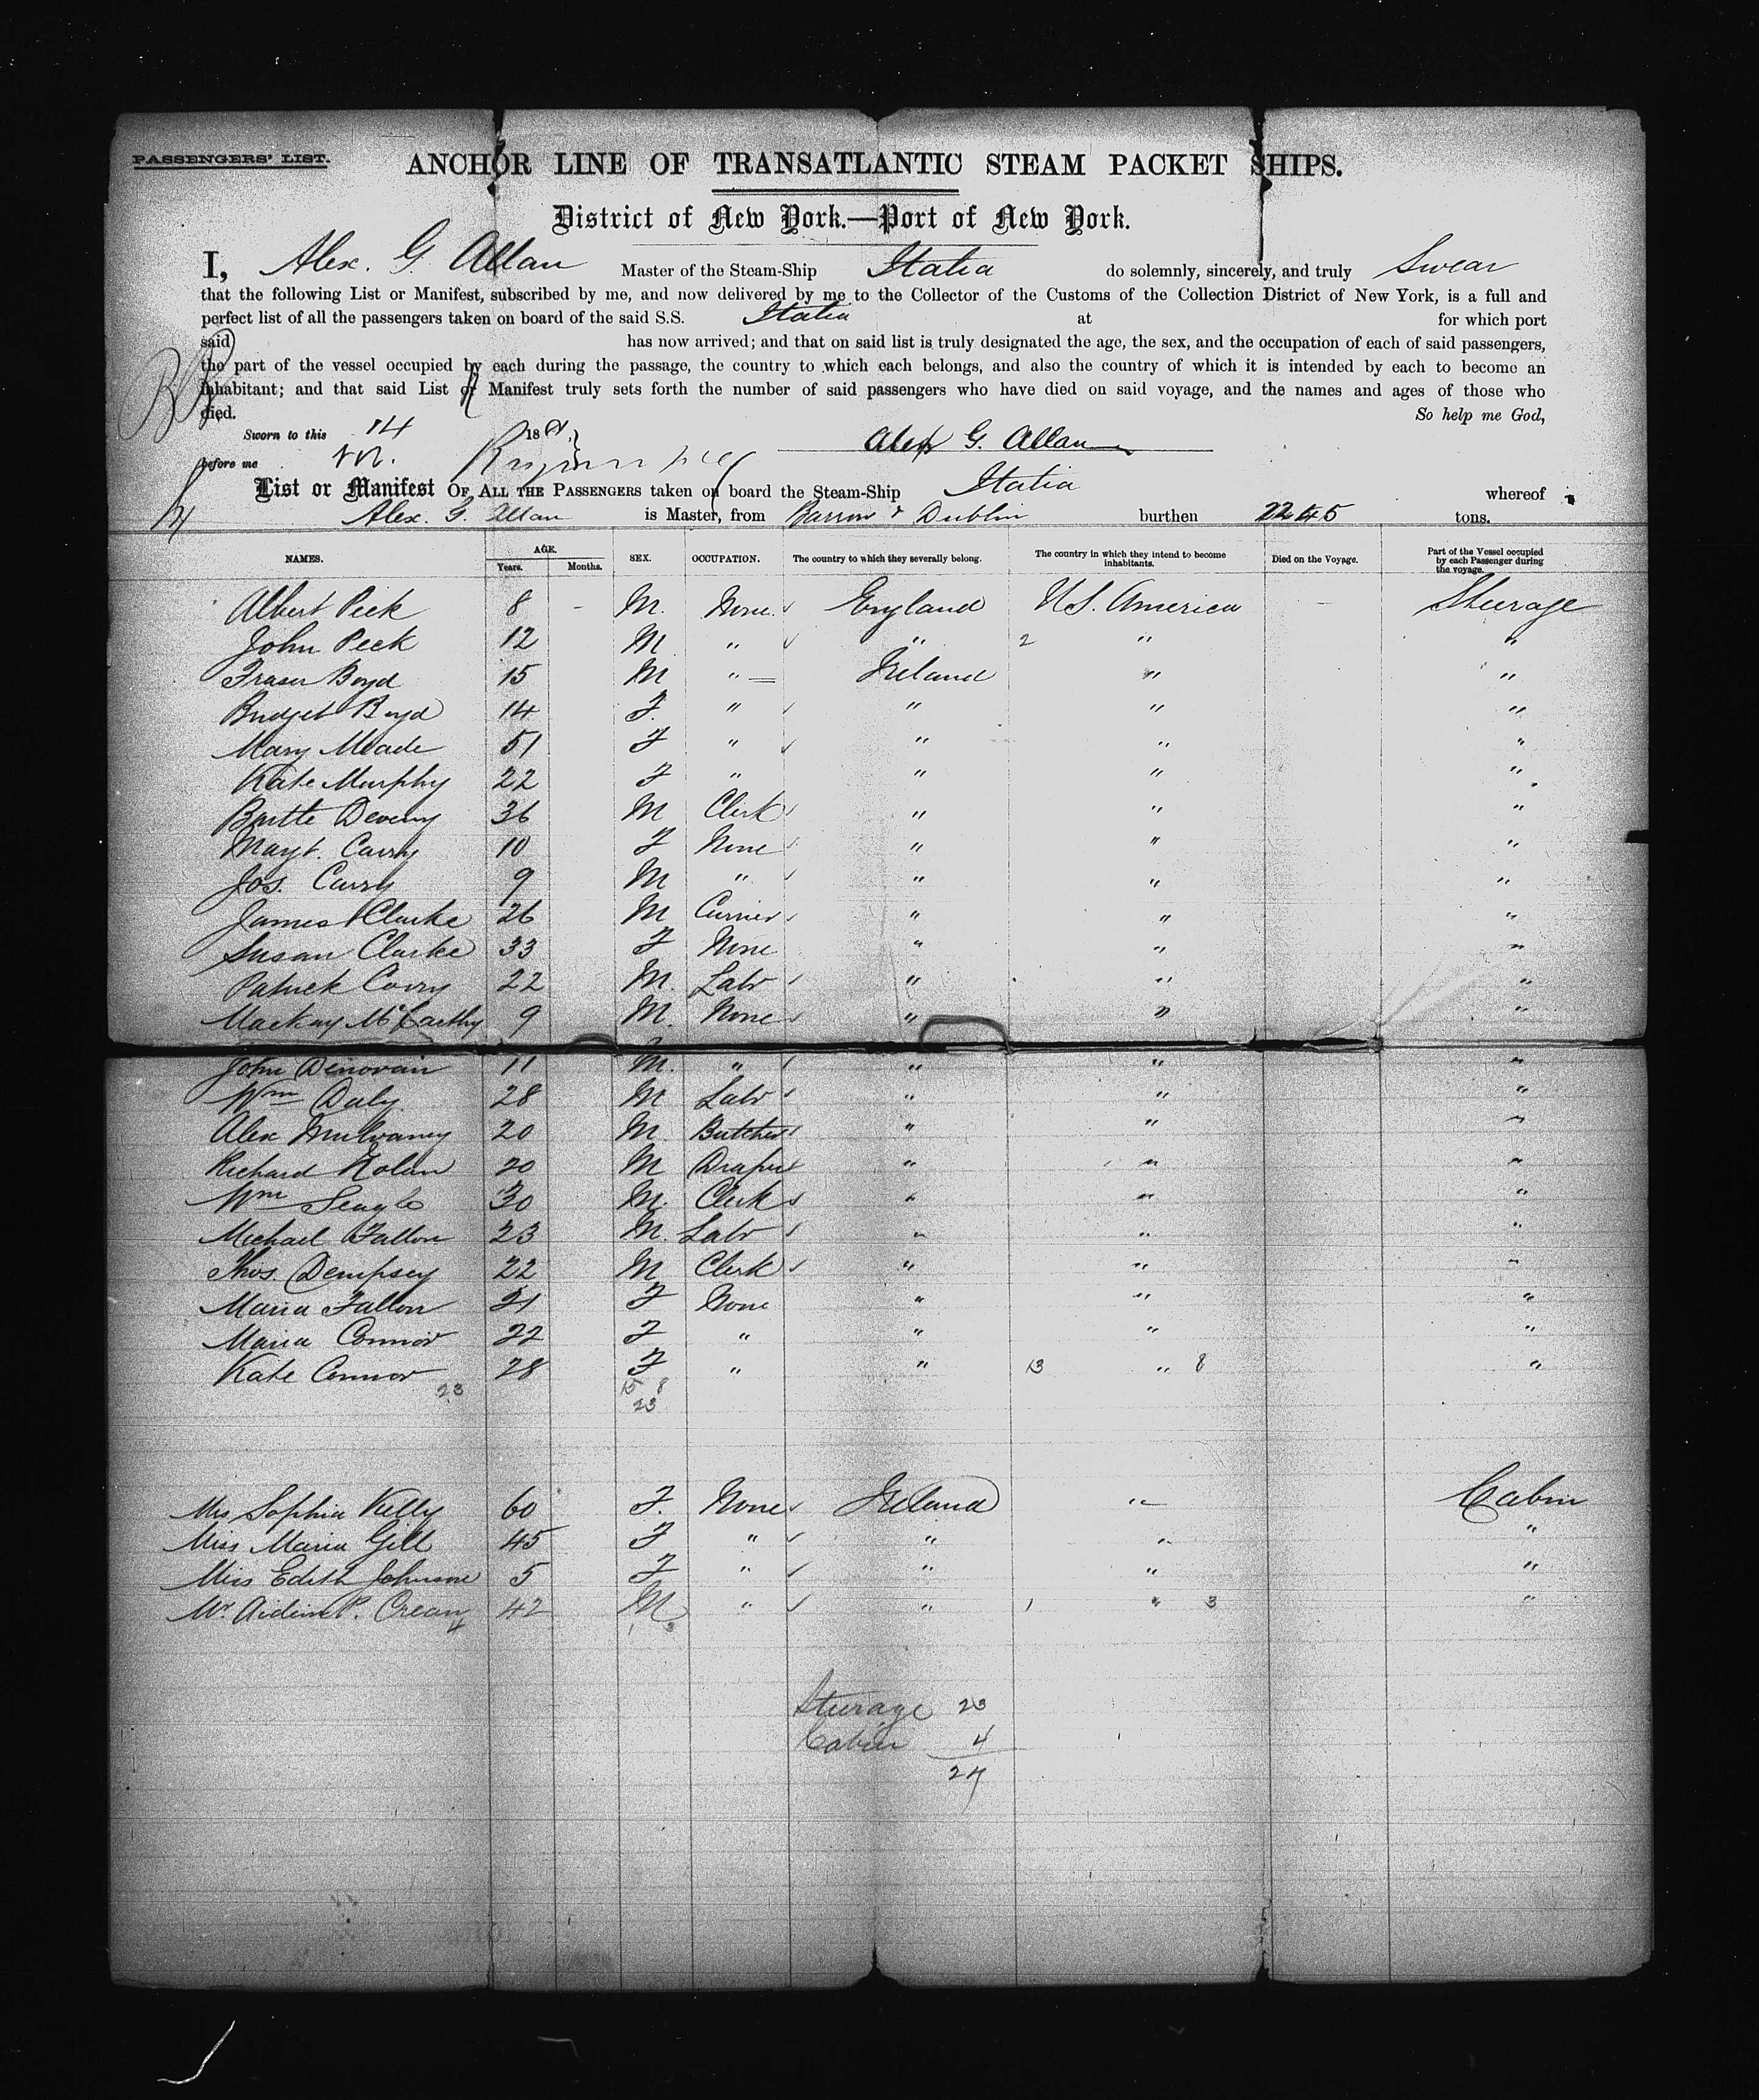 PASSENGERS' LIST.
ANCHOR LINE OF TRANSATLANTIC STEAM PACKET SHIPS.
District of New York.—Port of New York.
I, Alex. G. Allan Master of the Steam-Ship Italia do solemnly, sincerely, and truly Swear
that the following List or Manifest, subscribed by me, and now delivered by me to the Collector of the Customs of the Collection District of New York, is a full and
perfect list of all the passengers taken on board of the said S.S. Italia at for which port
said has now arrived; and that on said list is truly designated the age, the sex, and the occupation of each of said passengers,
the part of the vessel occupied by each during the passage, the country to which each belongs, and also the country of which it is intended by each to become an
inhabitant; and that said List or Manifest truly sets forth the number of said passengers who have died on said voyage, and the names and ages of those who
died. So help me God,
Sworn to this 14 18 Alex G. Allan
before me
List or Manifest OF ALL THE PASSENGERS taken on board the Steam-Ship Italia whereof
Alex. G. Allan is Master, from Barrow & Dublin burthen 2245 tons.
NAMES. AGE. Years. Months. SEX. OCCUPATION. The country to which they severally belong. The country in which they intend to become inhabitants. Died on the Voyage. Part of the Vessel occupied by each Passenger during the voyage.
Albert Peck 8 - M. None England U.S. America — Steerage
John Peck 12 M " " 2 " "
Fraser Boyd 15 M " Ireland " "
Bridget Boyd 14 F. " " " "
Mary Meade 51 F " " " "
Kate Murphy 22 F " " " "
Bartle Deveny 36 M Clerk " " "
Margt. Carry 10 F None " " "
Jos. Carry 9 M " " " "
James Clarke 26 M Currier " " "
Susan Clarke 33 F None " " "
Patrick Corry 22 M. Labr " " "
Mackay McCarthy 9 M. None " " "
John Denovan 11 M. " " " "
Wm Daly 28 M Labr " " "
Alex Mulvaney 20 M. Butcher " " "
Richard Nolan 20 M Draper " " "
Wm 30 M. Clerk " " "
Michael Fallon 23 M. Labr " " "
Thos. Dempsey 22 M Clerk " " "
Maria Fallon 21 F None " " "
Maria Connor 22 F " " " "
Kate Connor 28 F " " 13 " 8 "
23 15 8
23
Mrs Sophia Kelly 60 F. None Ireland " Cabin
Miss Maria Gill 45 F " " " "
Miss Edith Johnson 5 F " " " "
Mr. Aiden P. Crean 42 M " " 1 " 3 "
4 1 3
Steerage 23
Cabin 4
27